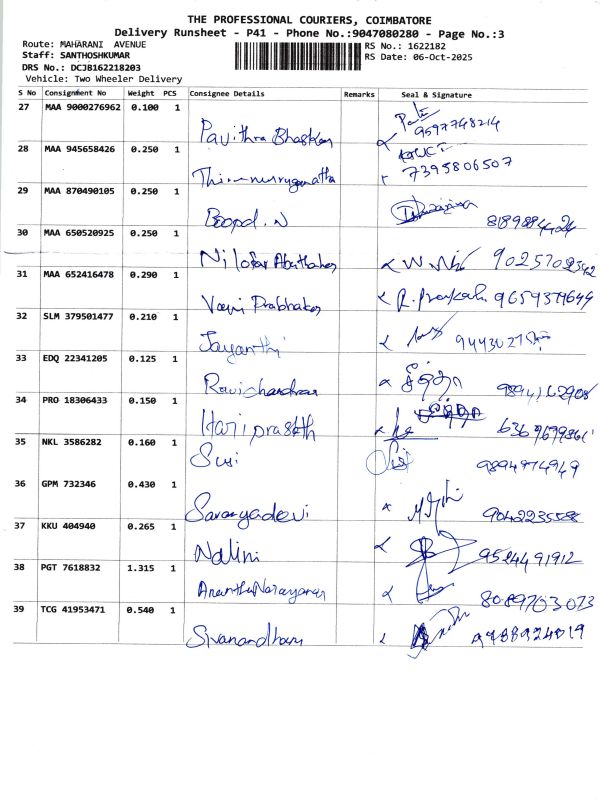 THE PROFESSIONAL COURIERS, COIMBATORE
Delivery Runsheet - P41 - Phone No.:9047080280 - Page No.:3
Route: MAHARANI AVENUE RS No.: 1622182
Staff: SANTHOSHKUMAR RS Date: 06-Oct-2025
DRS No.: DCJB162218203
Vehicle: Two Wheeler Delivery
S No Consignment No Weight PCS Consignee Details Remarks Seal & Signature
27 MAA 9000276962 0.100 1
Pavithra Bhaskar 9597748214
28 MAA 945658426 0.250 1
7395806507
29 MAA 870490105 0.250 1
Boopal. N
30 MAA 650520925 0.250 1
Nilofar
31 MAA 652416478 0.290 1
Vaani Prabhakar 9659379649
32 SLM 379501477 0.210 1
Jayanthi
33 EDQ 22341205 0.125 1
Ravichandran
34 PRO 18306433 0.150 1
Hari prasath
35 NKL 3586282 0.160 1
Suji 9894974949
36 GPM 732346 0.430 1
Saranyadevi
37 KKU 404940 0.265 1
Nalini 9524491912
38 PGT 7618832 1.315 1
Anantha Narayanan 8089703073
39 TCG 41953471 0.540 1
Sivanandham 9788924019